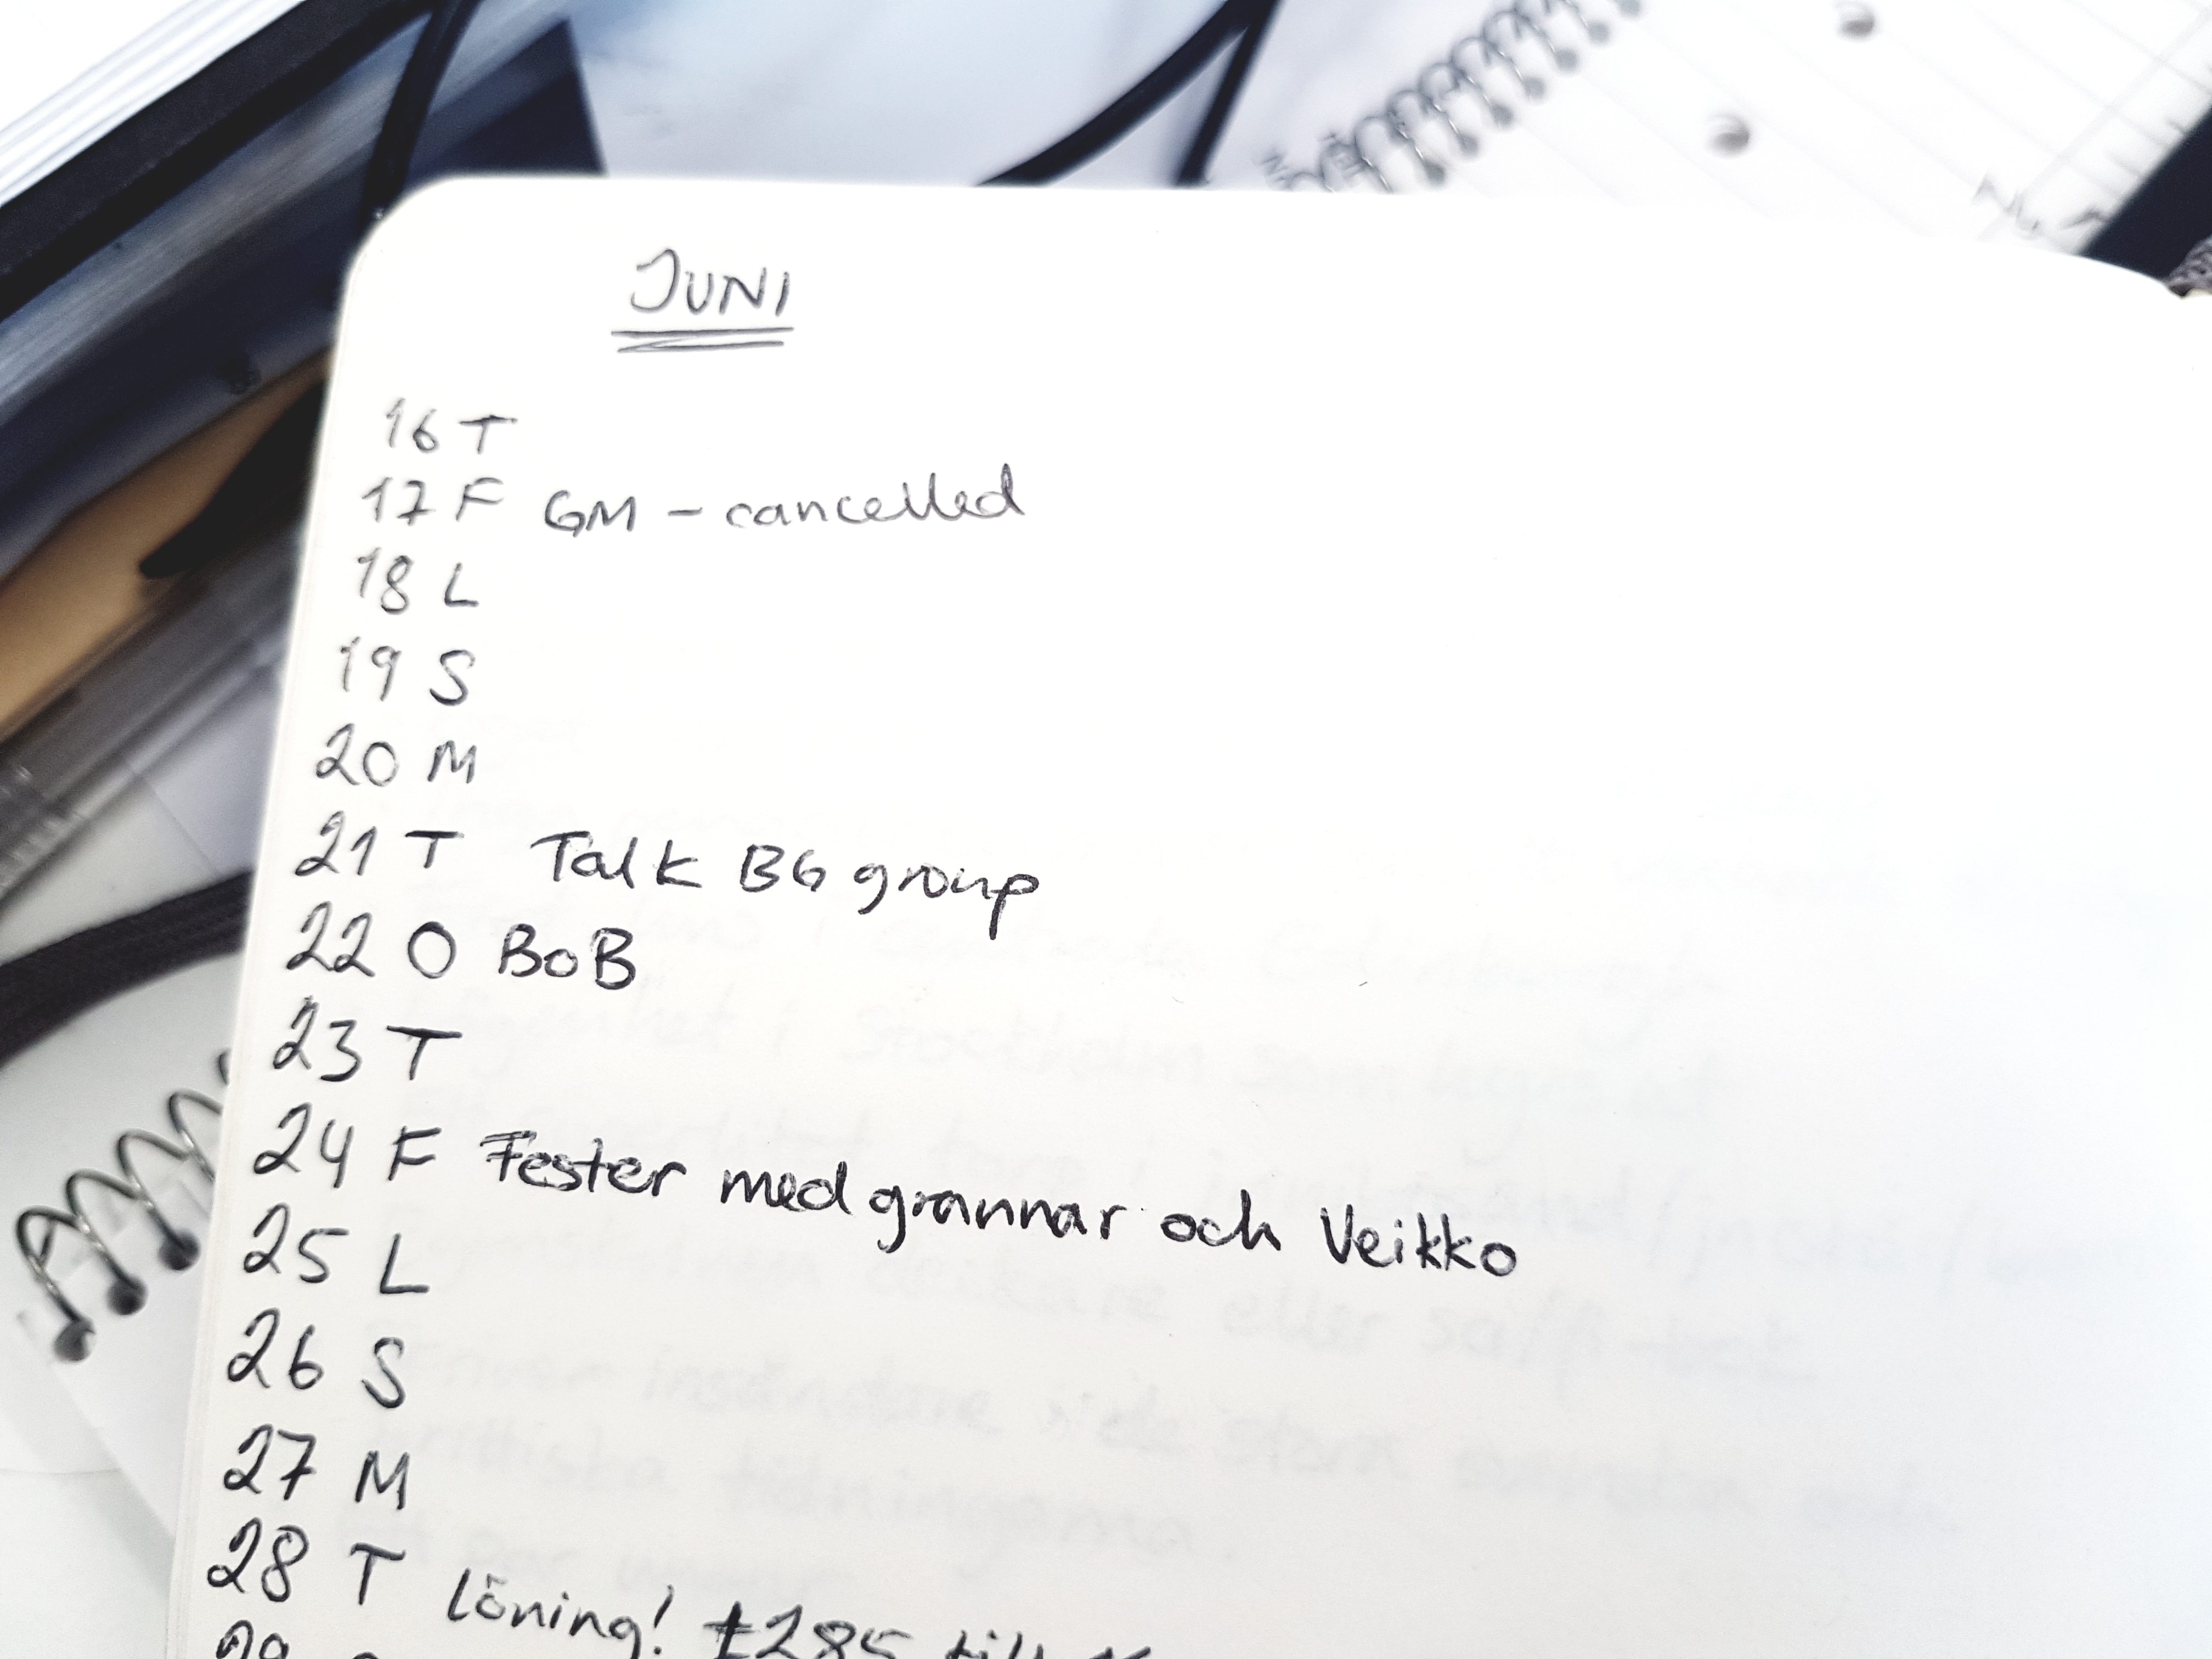 JUNI
16 T
17 F GM - cancelled
18 L
19 S
20 M
21 T Talk BG group
22 O BoB
23 T
24 F Fester med grannar och Veikko
25 L
26 S
27 M
28 T löning! £285 till